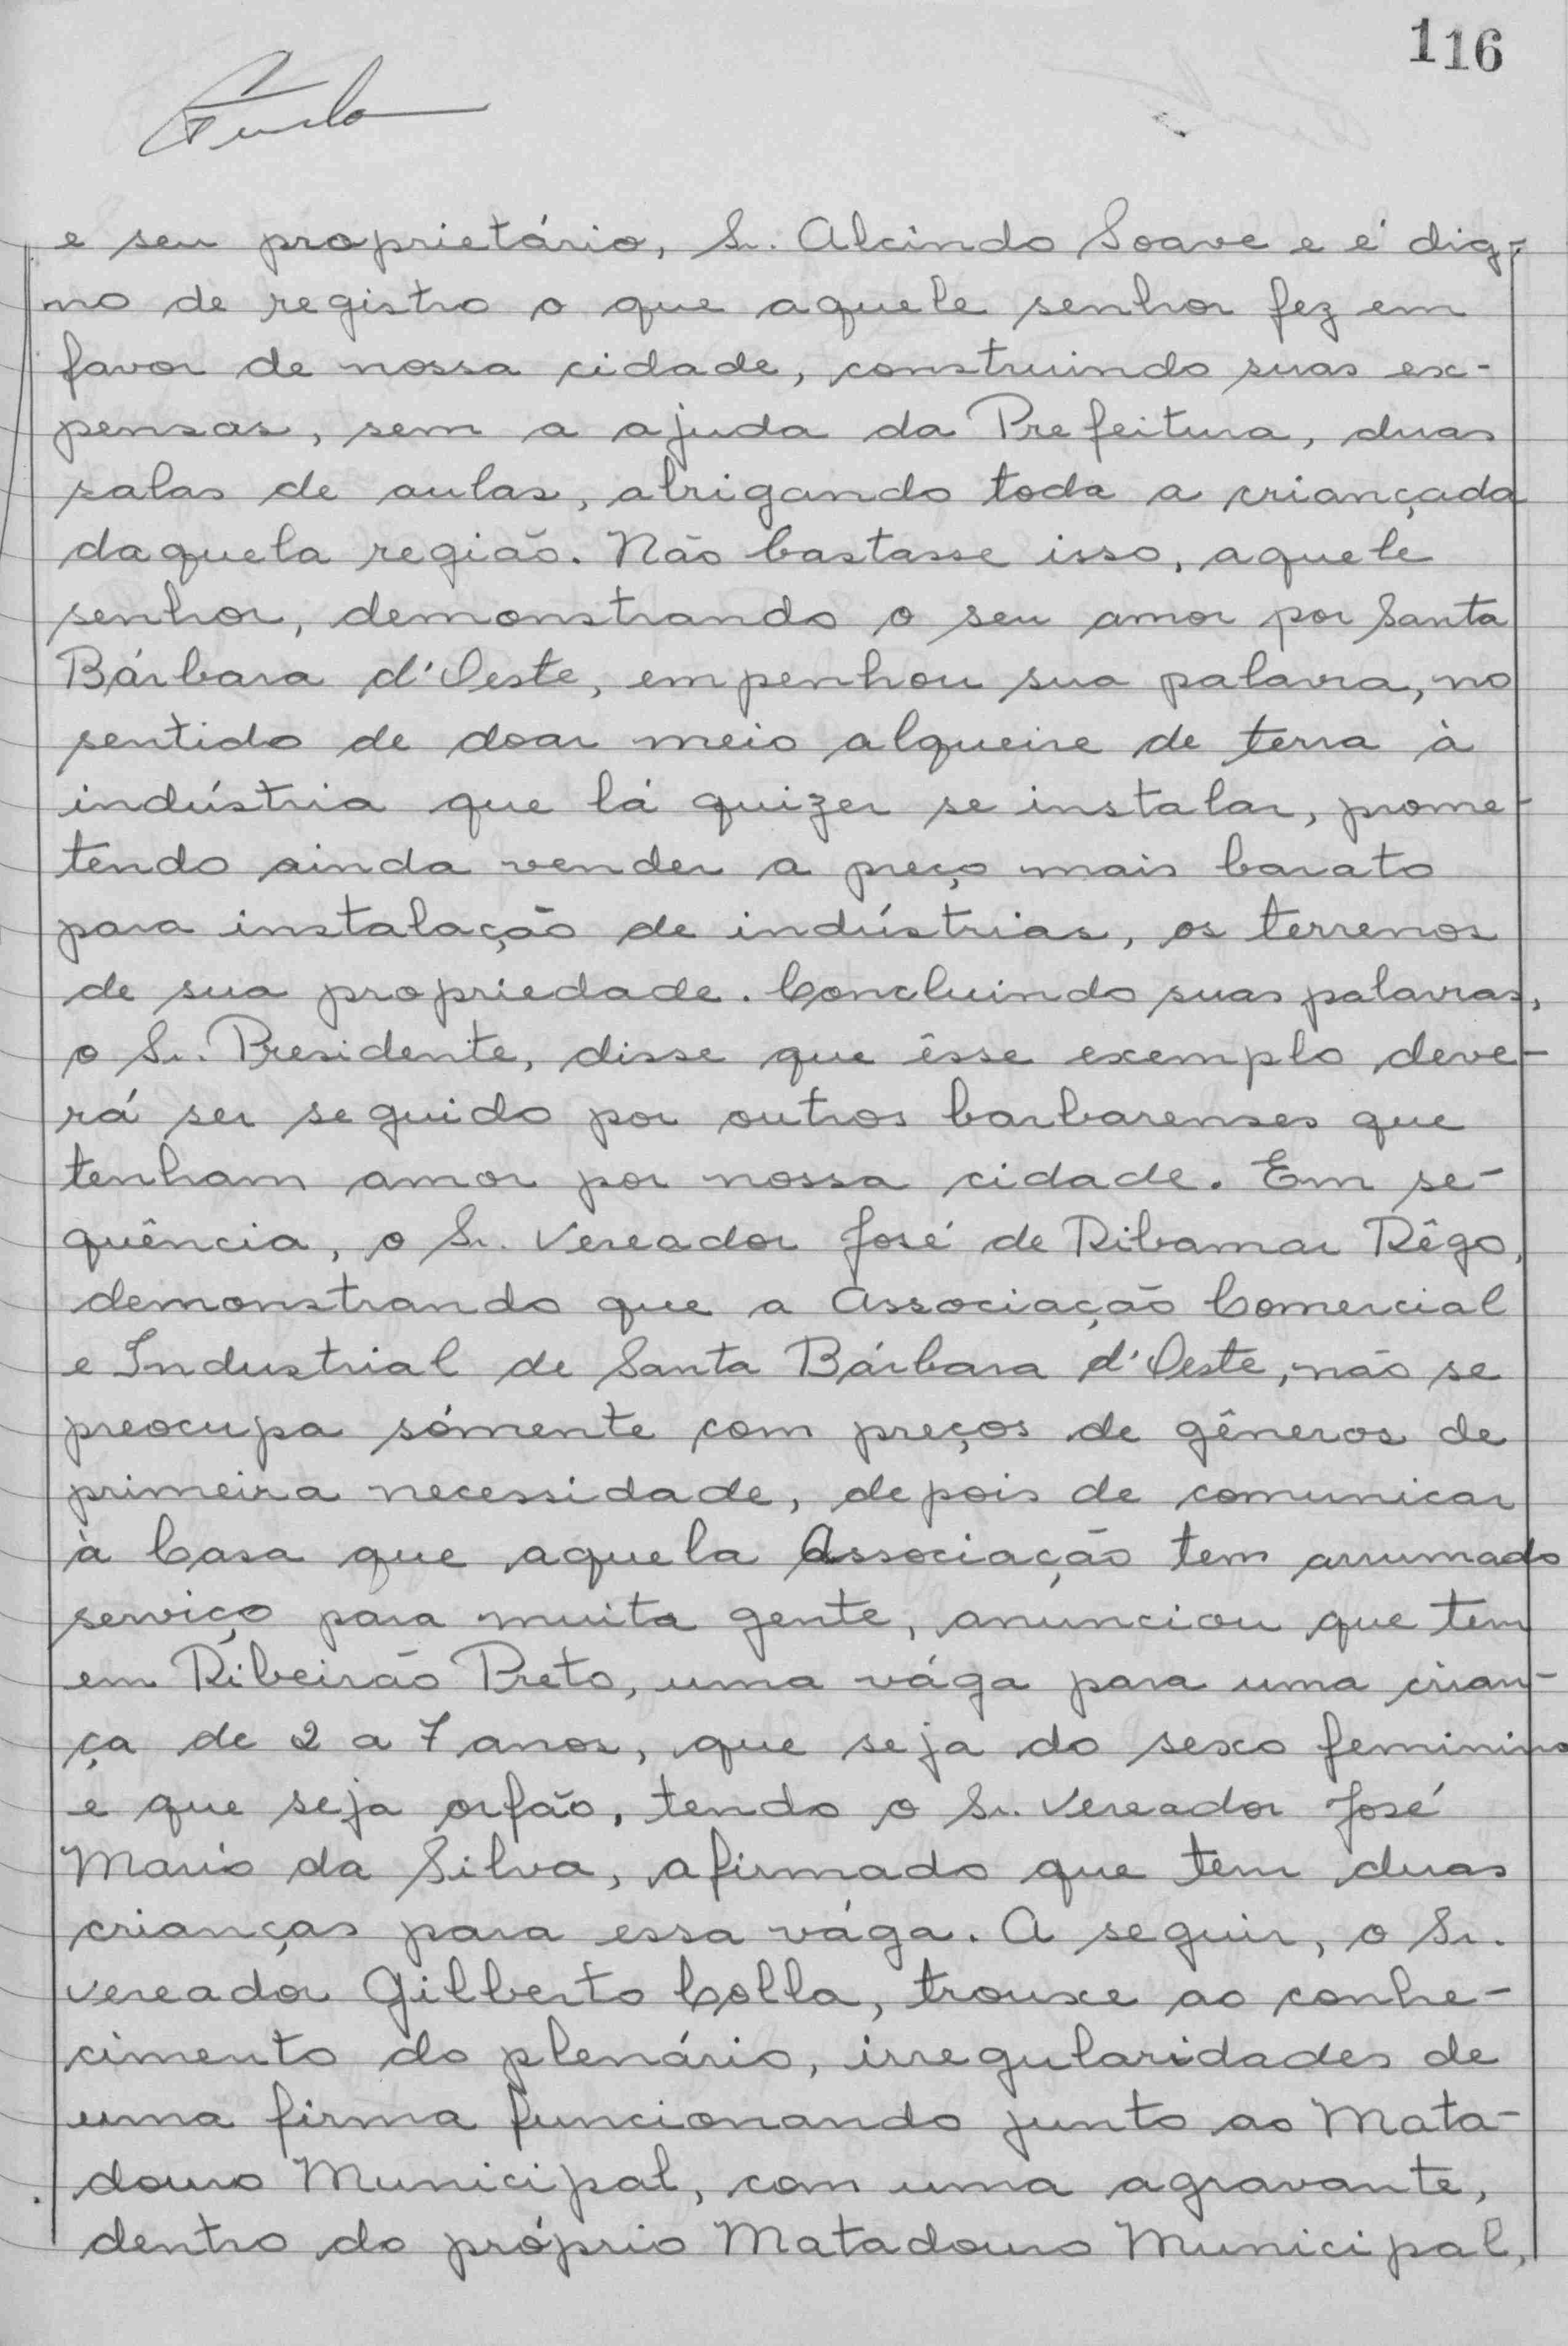 116
e seu proprietário, Sr. Alcindo Soave e é dig-
no de registro o que aquele senhor fez em
favor de nossa cidade, construindo suas ex-
pensas, sem a ajuda da Prefeitura, duas
salas de aulas, abrigando toda a criançada
daquela região. Não bastasse isso, aquele
senhor, demonstrando o seu amor por Santa
Bárbara d'Oeste, empenhou sua palavra, no
sentido de doar meio alqueire de terra à
indústria que lá quizer se instalar, prome-
tendo ainda vender a preço mais barato
para instalação de indústrias, os terrenos
de sua propriedade. Concluindo suas palavras,
o Sr. Presidente, disse que êsse exemplo deve-
rá ser seguido por outros barbarenses que
tenham amor por nossa cidade. Em se-
quência, o Sr. Vereador José de Ribamar Rêgo,
demonstrando que a Associação Comercial
e Industrial de Santa Bárbara d'Oeste, não se
preocupa sómente com preços de gêneros de
primeira necessidade, depois de comunicar
à Casa que aquela Associação tem arrumado
serviço para muita gente, anúnciou que tem
em Ribeirão Preto, uma vága para uma crian-
ça de 2 a 7 anos, que seja do sexo feminino
e que seja orfão, tendo o Sr. Vereador José
Mario da Silva, afirmado que tem duas
crianças para essa vága. A seguir, o Sr.
Vereador Gilberto Colla, trouxe ao conhe-
cimento do plenário, irregularidades de
uma firma funcionando junto ao Mata-
douro Municipal, com uma agravante,
dentro do próprio Matadouro Municipal,